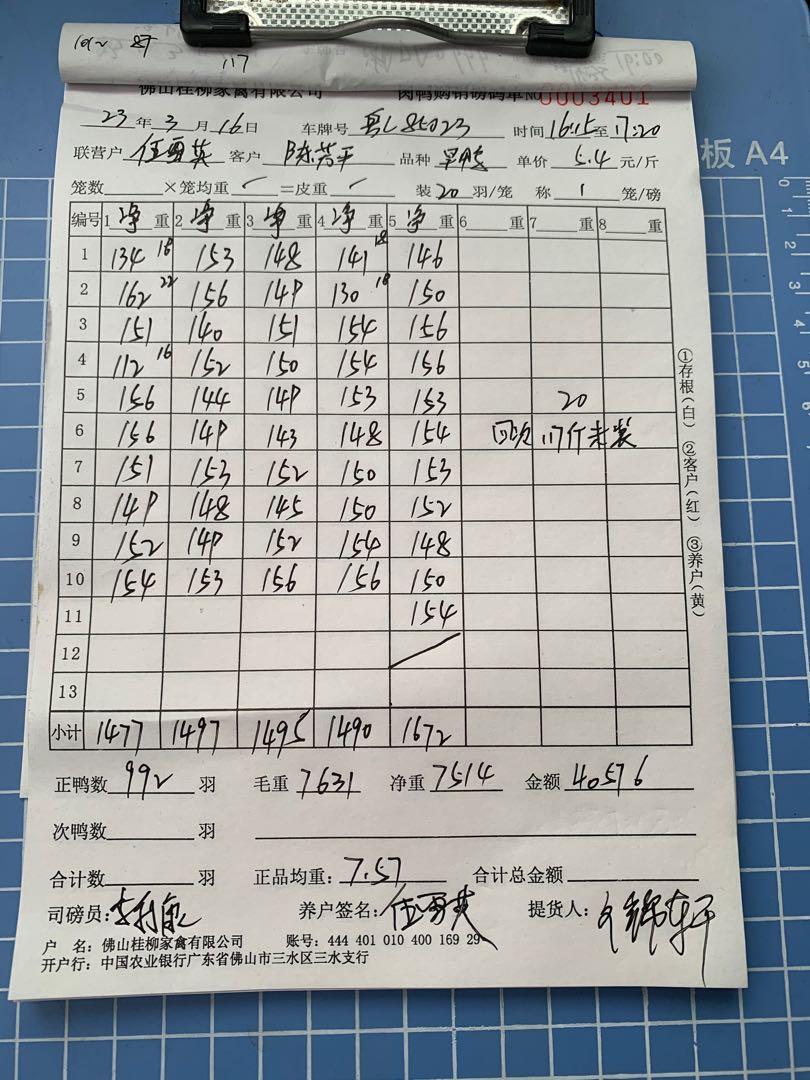 117
佛山桂柳家禽有限公司 肉鸭购销磅码单 No 0003401
23 年 3 月 16 日 车牌号 粤L85023 时间 16:15 至 17:20
联营户 伍勇英 客户 陈芳平 品种 单价 5.4 元/斤
笼数 ×笼均重 =皮重 装 20 羽/笼 称 1 笼/磅
编号 1 净 重 2 净 重 3 净 重 4 净 重 5 净 重 6 重 7 重 8 重
1 134 18 153 148 141 18 146
2 162 22 156 149 130 18 150
3 151 140 151 154 156
4 112 16 152 150 154 156
5 156 144 149 153 153 20
6 156 149 143 148 154 117斤未装
7 151 153 152 150 153
8 149 148 145 150 152
9 152 149 152 154 148
10 154 153 156 156 150
11 154
12
13
小计 1477 1497 1495 1490 1672
正鸭数 992 羽 毛重 7631 净重 7514 金额 40576
次鸭数 羽
合计数 羽 正品均重: 7.57 合计总金额
司磅员: 养户签名: 伍勇英 提货人:
户 名: 佛山桂柳家禽有限公司 账号: 444 401 010 400 169 29
开户行: 中国农业银行广东省佛山市三水区三水支行
①存根(白) ②客户(红) ③养户(黄)
板 A4
0
1
2
3
4
5